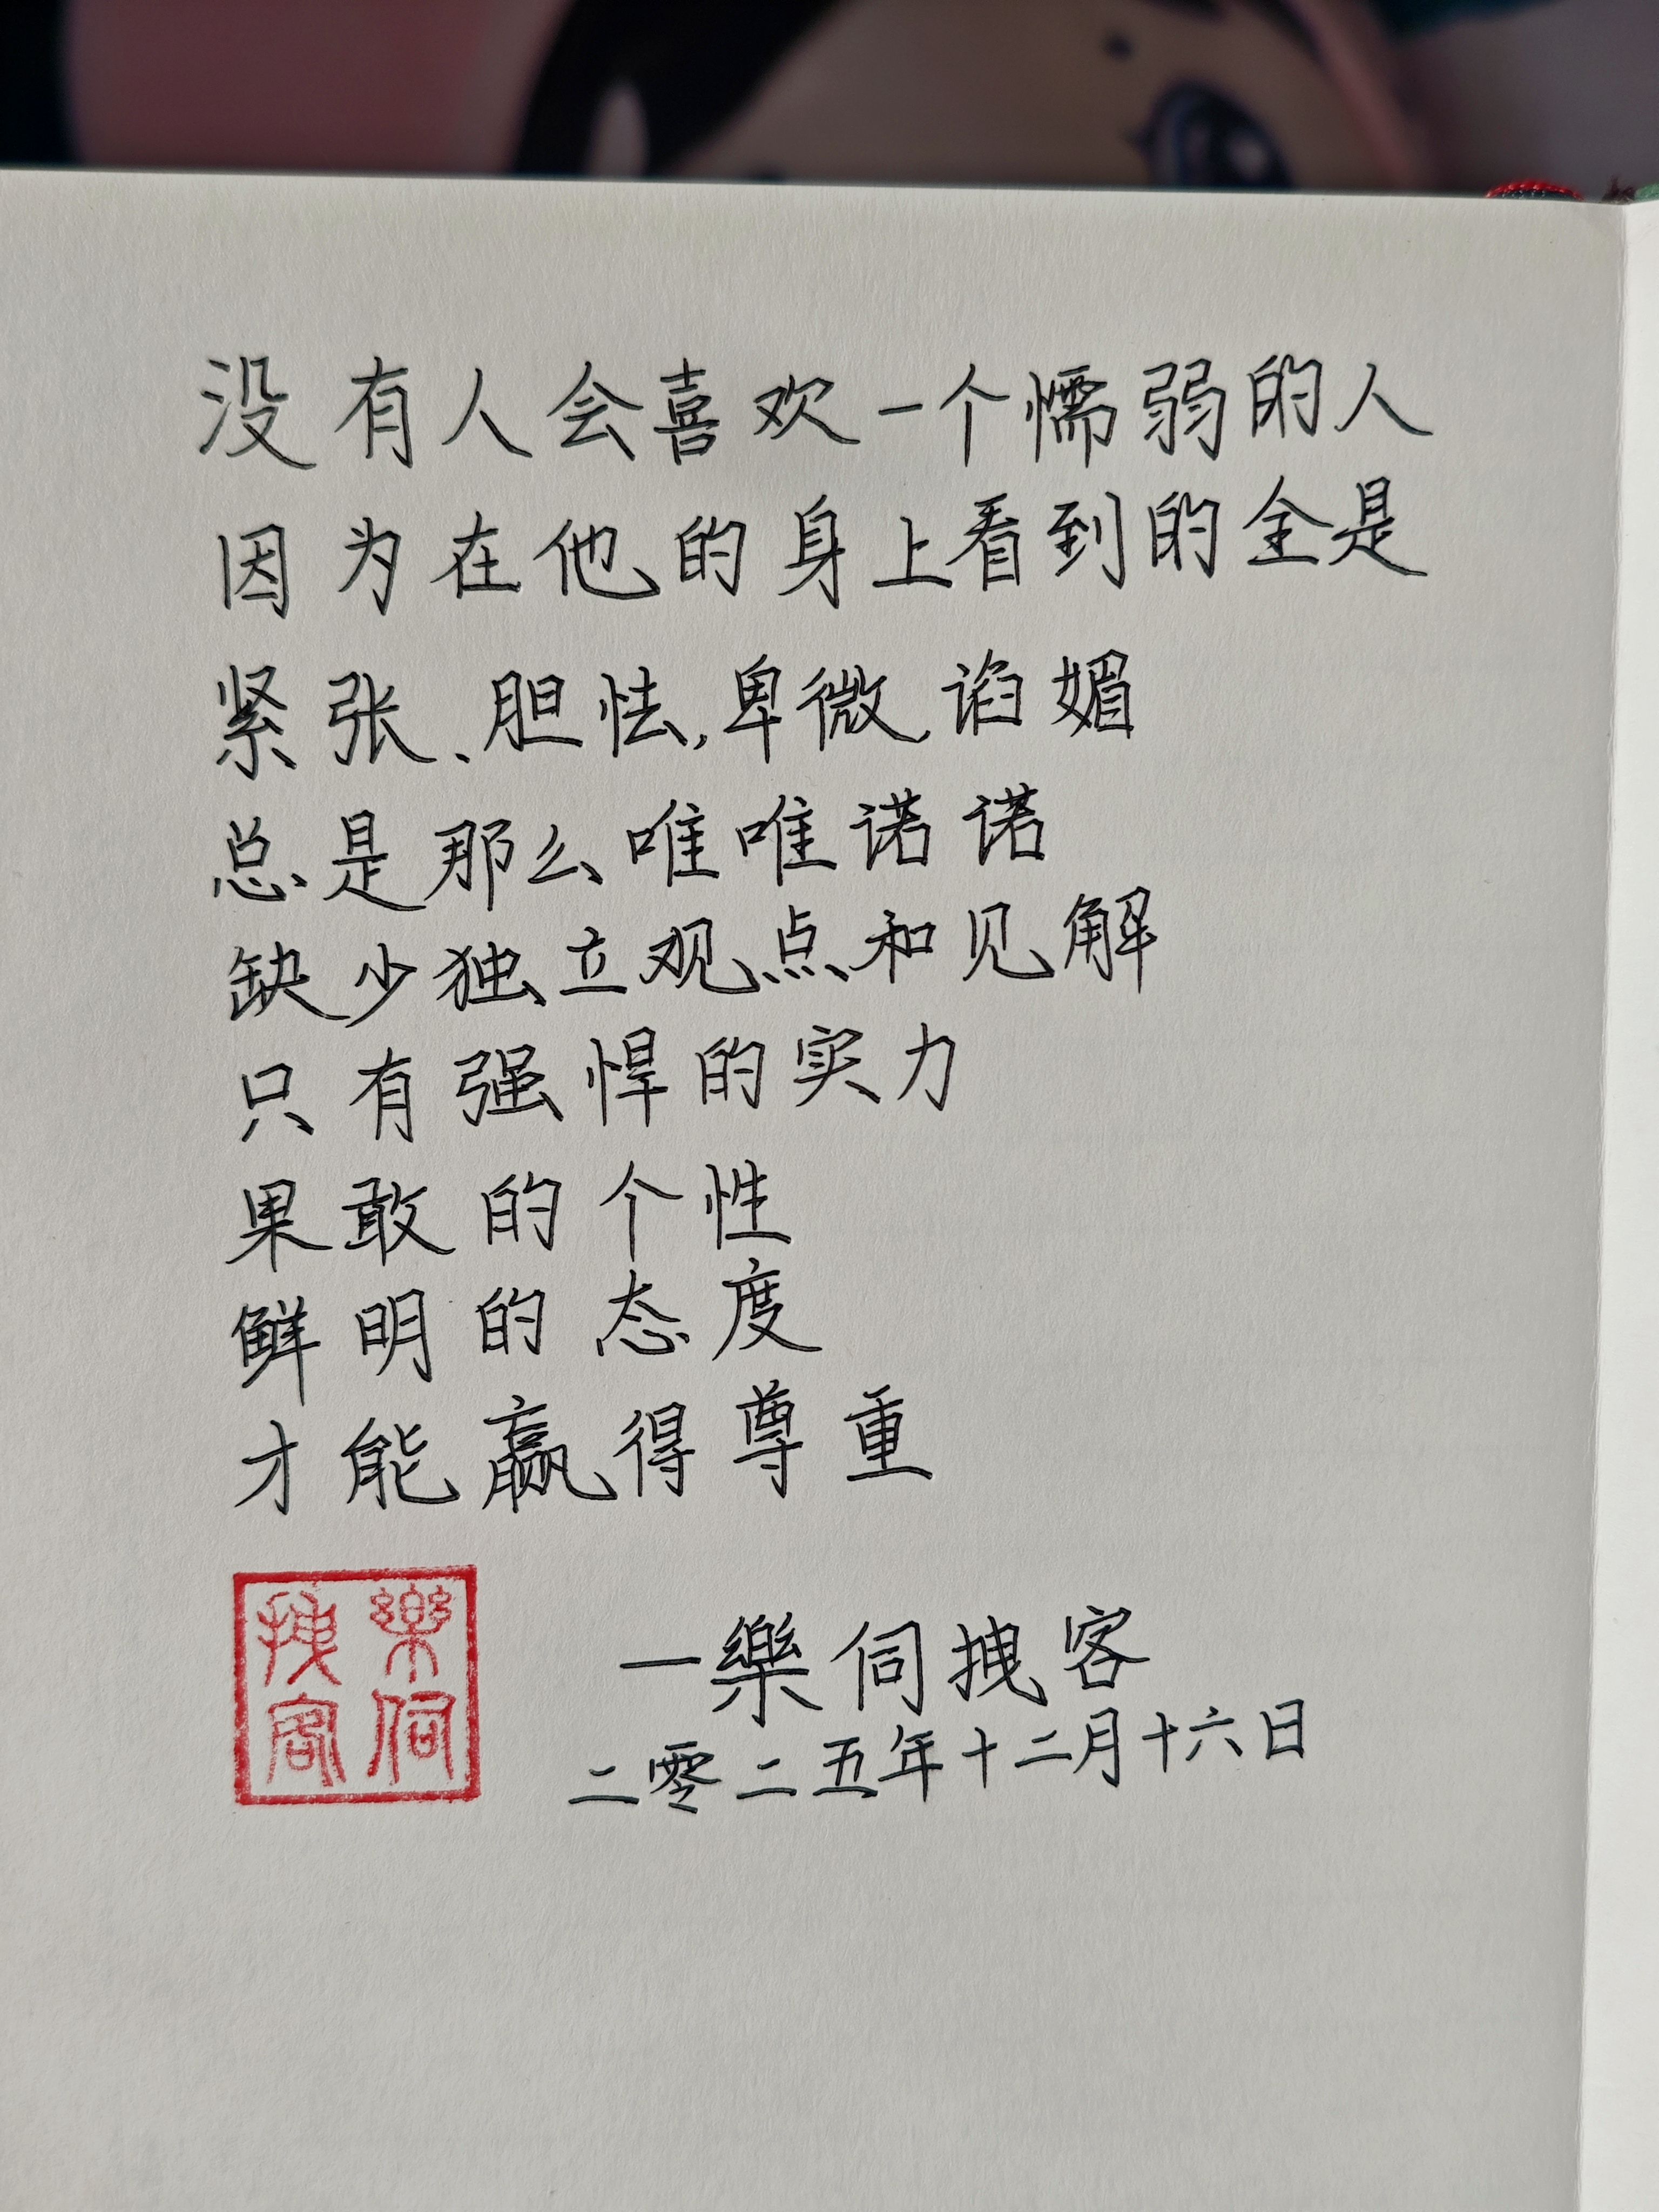 没有人会喜欢一个懦弱的人
因为在他的身上看到的全是
紧张、胆怯,卑微,谄媚
总是那么唯唯诺诺
缺少独立观点和见解
只有强悍的实力
果敢的个性
鲜明的态度
才能赢得尊重
一樂伺拽客
二零二五年十二月十六日
樂伺
拽客